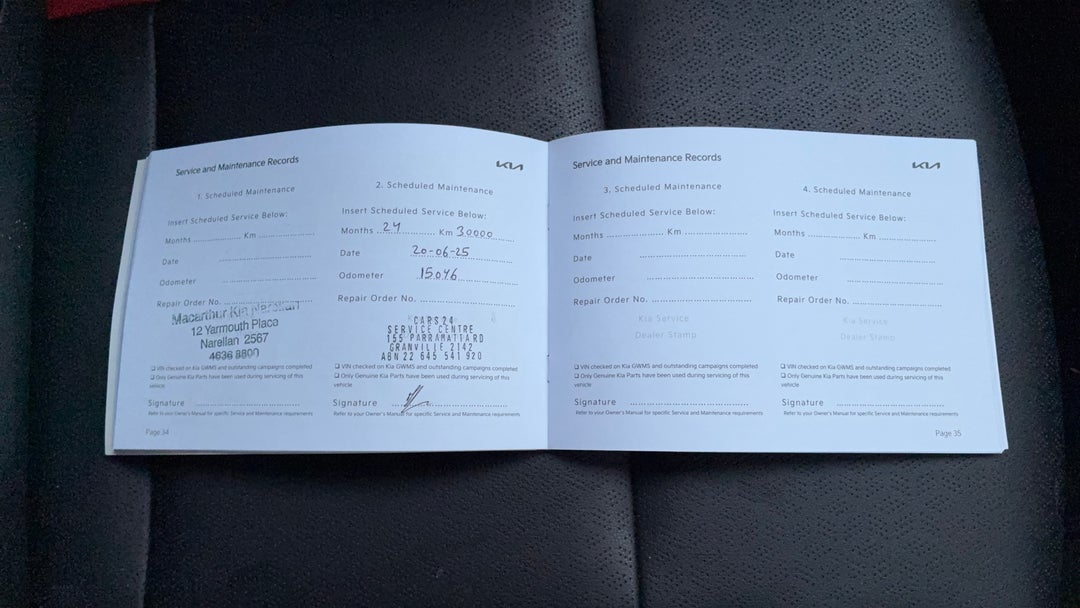 Service and Maintenance Records
KIA
1. Scheduled Maintenance
Insert Scheduled Service Below:
Months .................. Km ......................
Date ..............................
Odometer ..............................
Repair Order No. ..............................
Macarthur Kia Narellan
12 Yarmouth Place
Narellan 2567
4636 8800
❑ VIN checked on Kia GWMS and outstanding campaigns completed
❑ Only Genuine Kia Parts have been used during servicing of this
vehicle
Signature ..............................
Refer to your Owner's Manual for specific Service and Maintenance requirements
Page 34
2. Scheduled Maintenance
Insert Scheduled Service Below:
Months 24 Km 30000
Date 20-06-25
Odometer 15046
Repair Order No. ..............................
CARS24
SERVICE CENTRE
155 PARRAMATTA RD
GRANVILLE 2142
ABN 22 645 541 920
❑ VIN checked on Kia GWMS and outstanding campaigns completed
❑ Only Genuine Kia Parts have been used during servicing of this
vehicle
Signature ..............................
Refer to your Owner's Manual for specific Service and Maintenance requirements
Service and Maintenance Records
KIA
3. Scheduled Maintenance
Insert Scheduled Service Below:
Months .................. Km ......................
Date ..............................
Odometer ..............................
Repair Order No. ..............................
Kia Service
Dealer Stamp
❑ VIN checked on Kia GWMS and outstanding campaigns completed
❑ Only Genuine Kia Parts have been used during servicing of this
vehicle
Signature ..............................
Refer to your Owner's Manual for specific Service and Maintenance requirements
4. Scheduled Maintenance
Insert Scheduled Service Below:
Months .................. Km ......................
Date ..............................
Odometer ..............................
Repair Order No. ..............................
Kia Service
Dealer Stamp
❑ VIN checked on Kia GWMS and outstanding campaigns completed
❑ Only Genuine Kia Parts have been used during servicing of this
vehicle
Signature ..............................
Refer to your Owner's Manual for specific Service and Maintenance requirements
Page 35